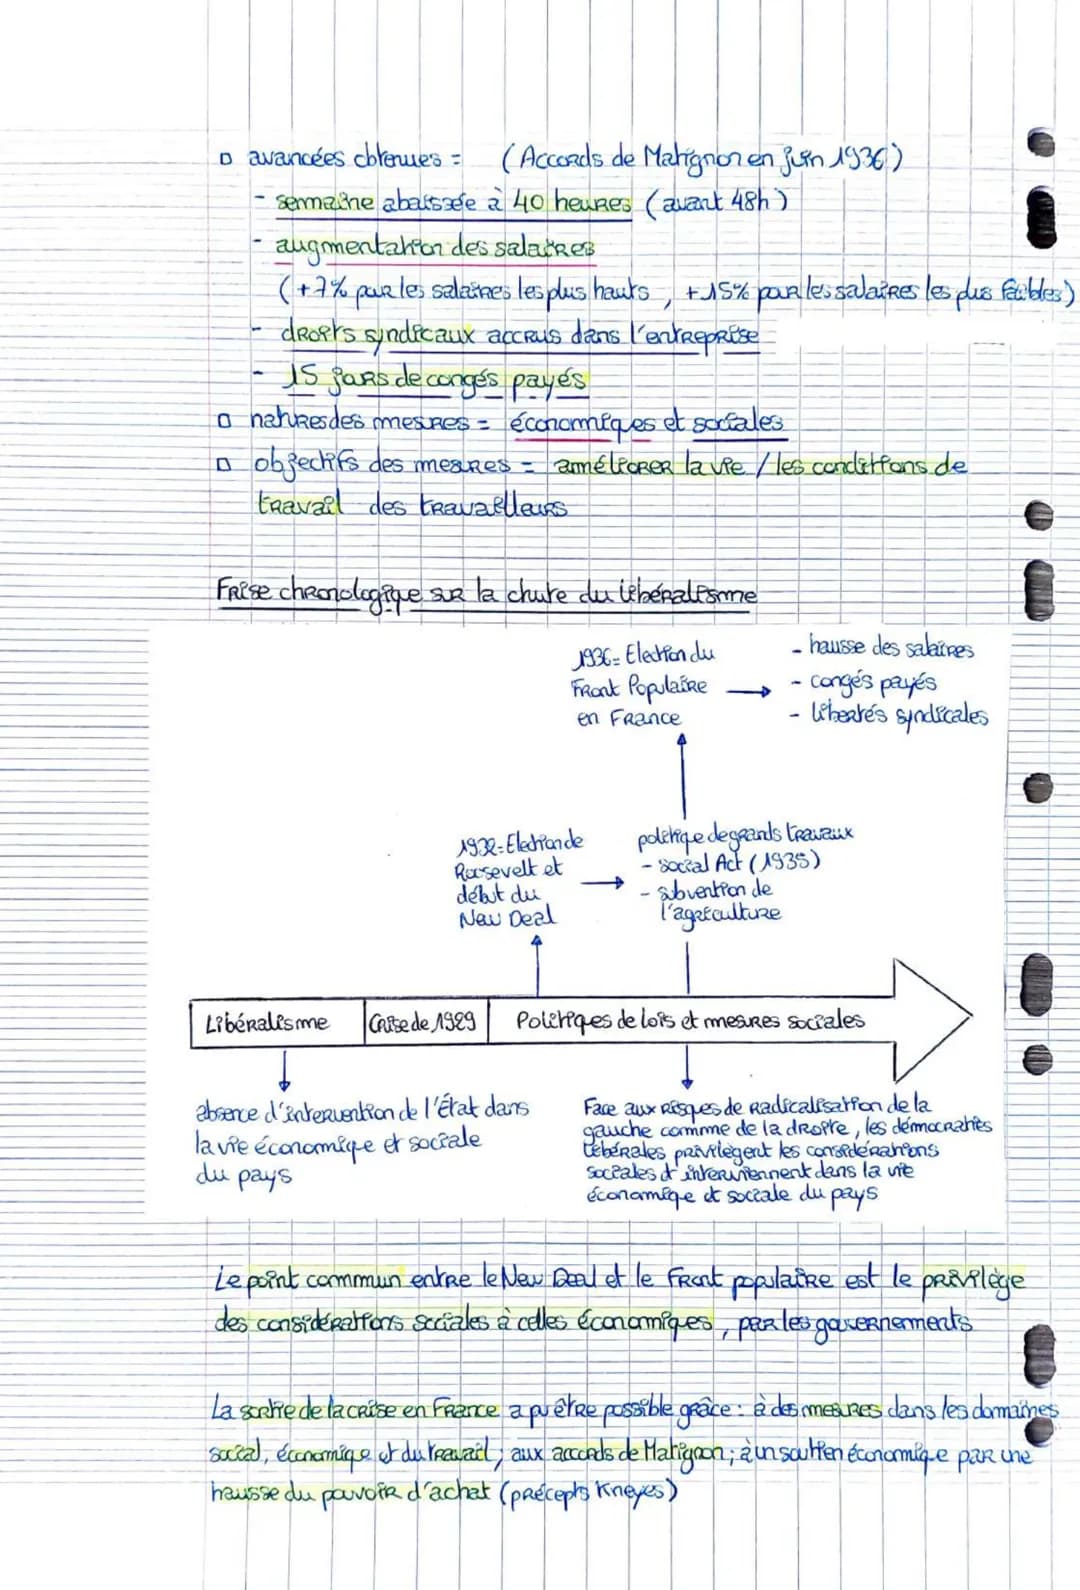 avancées obtenues = (Accords de Matignon en juin 1936)
- semaine abaissée à 40 heures (avant 48h)
- augmentation des salaires
(+7% pour les salaires les plus hauts, +15% pour les salaires les plus faibles)
- droits syndicaux accrus dans l'entreprise
- 15 jours de congés payés
natures des mesures = économiques et sociales
objectifs des mesures = améliorer la vie / les conditions de
travail des travailleurs
Frise chronologique sur la chute du libéralisme
1936= Election du
Front Populaire
en France
- hausse des salaires
- congés payés
- libertés syndicales
1932= Election de
Roosevelt et
début du
New Deal
politique de grands travaux
- social Act (1935)
- subvention de
l'agriculture
Libéralisme
Crise de 1929
Politiques de lois et mesures sociales
absence d'intervention de l'État dans
la vie économique et sociale
du pays
Face aux risques de radicalisation de la
gauche comme de la droite, les démocraties
libérales privilègent les considérations
sociales et interviennent dans la vie
économique et sociale du pays
Le point commun entre le New Deal et le Front populaire est le privilège
des considérations sociales à celles économiques, par les gouvernements
La sortie de la crise en France a pu être possible grâce : à des mesures dans les domaines
social, économique et du travail ; aux accords de Matignon ; à un soutien économique par une
hausse du pouvoir d'achat (précepts Kneyes)